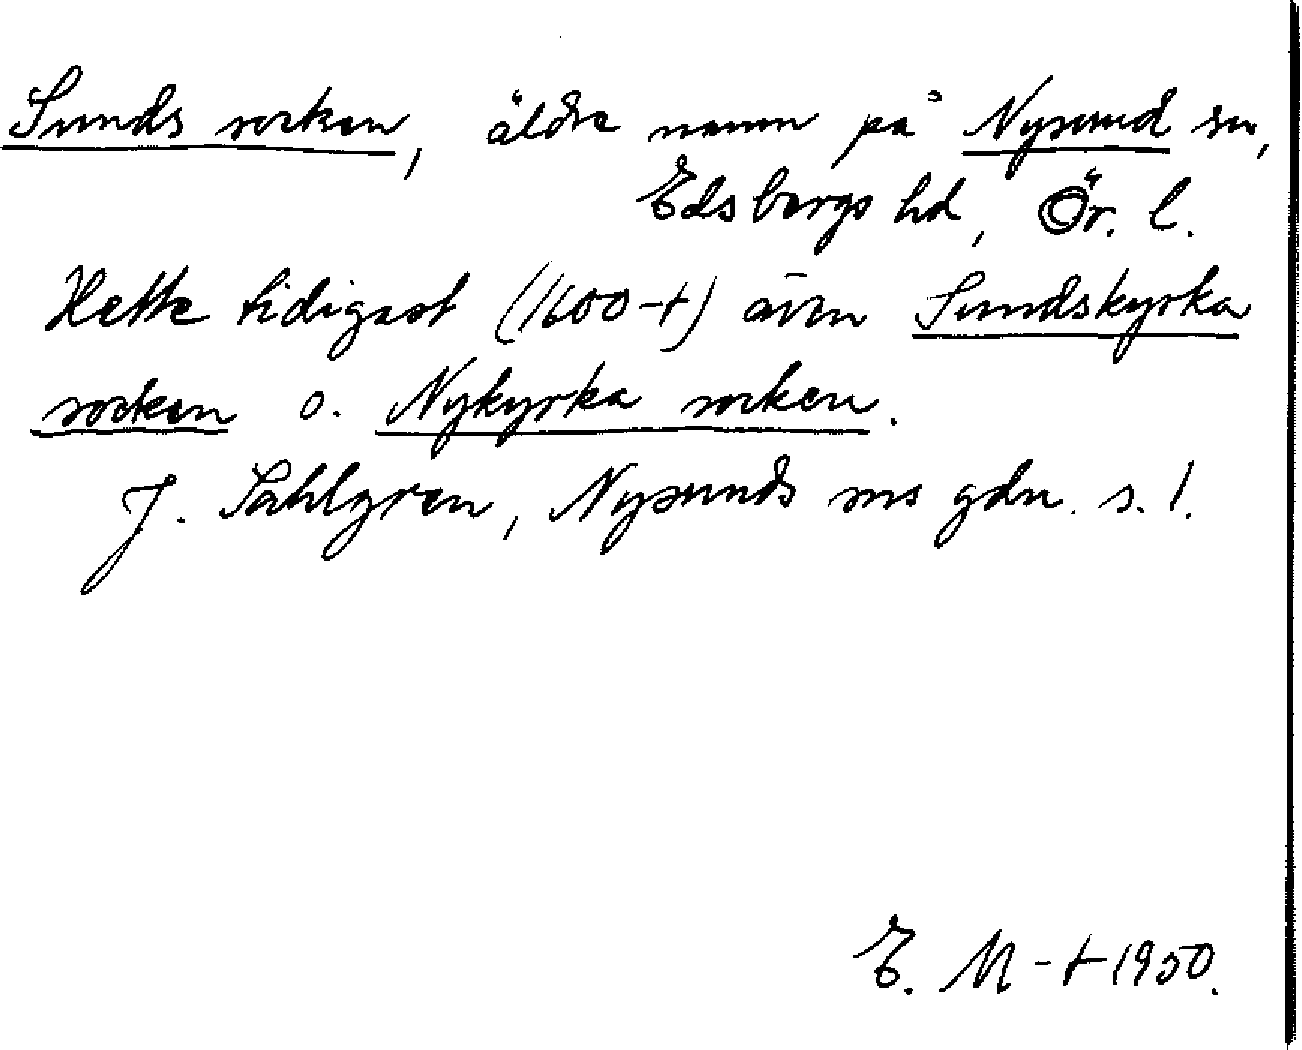 Sunds socken, äldre namn på Nysund sn,
Edsbergs hd, Ör. l.
Hette tidigast (1600-t) även Sundskyrka
socken o. Nykyrka socken.
J. Sahlgren, Nysunds sns gdn. s. 1.
E. M-t 1950.